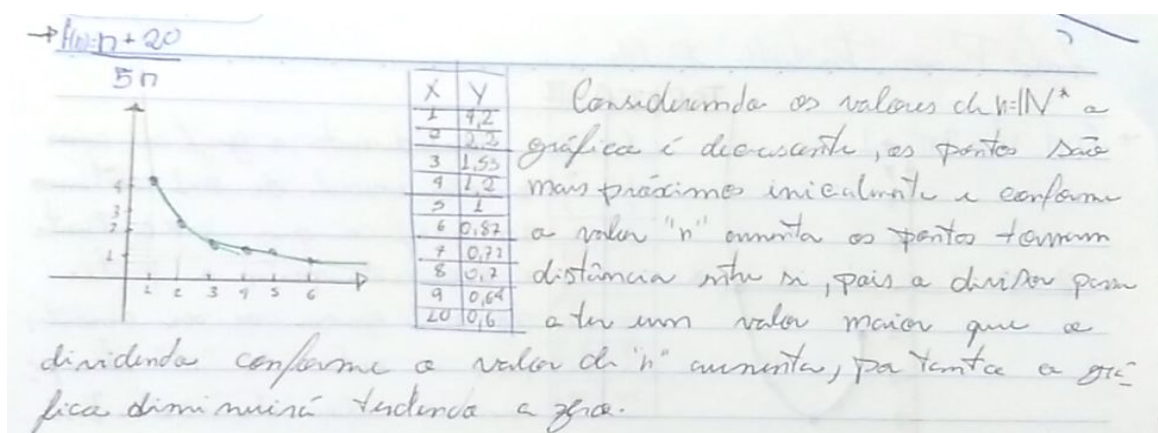 → f(n)=n+20
5n
X Y
1 4,2
2 2,2
3 1,53
4 1,2
5 1
6 0,87
7 0,77
8 0,7
9 0,64
10 0,6
4
3
2
1
1 2 3 4 5 6
Considerando os valores de n=IN* o
gráfico é decrescente, os pontos são
mais próximos inicialmente e conforme
o valor "n" aumenta os pontos tomam
distância entre si, pois o divisor passa
a ter um valor maior que o
dividendo conforme o valor de "n" aumenta, portanto o grá-
fico diminuirá tendendo a zero.